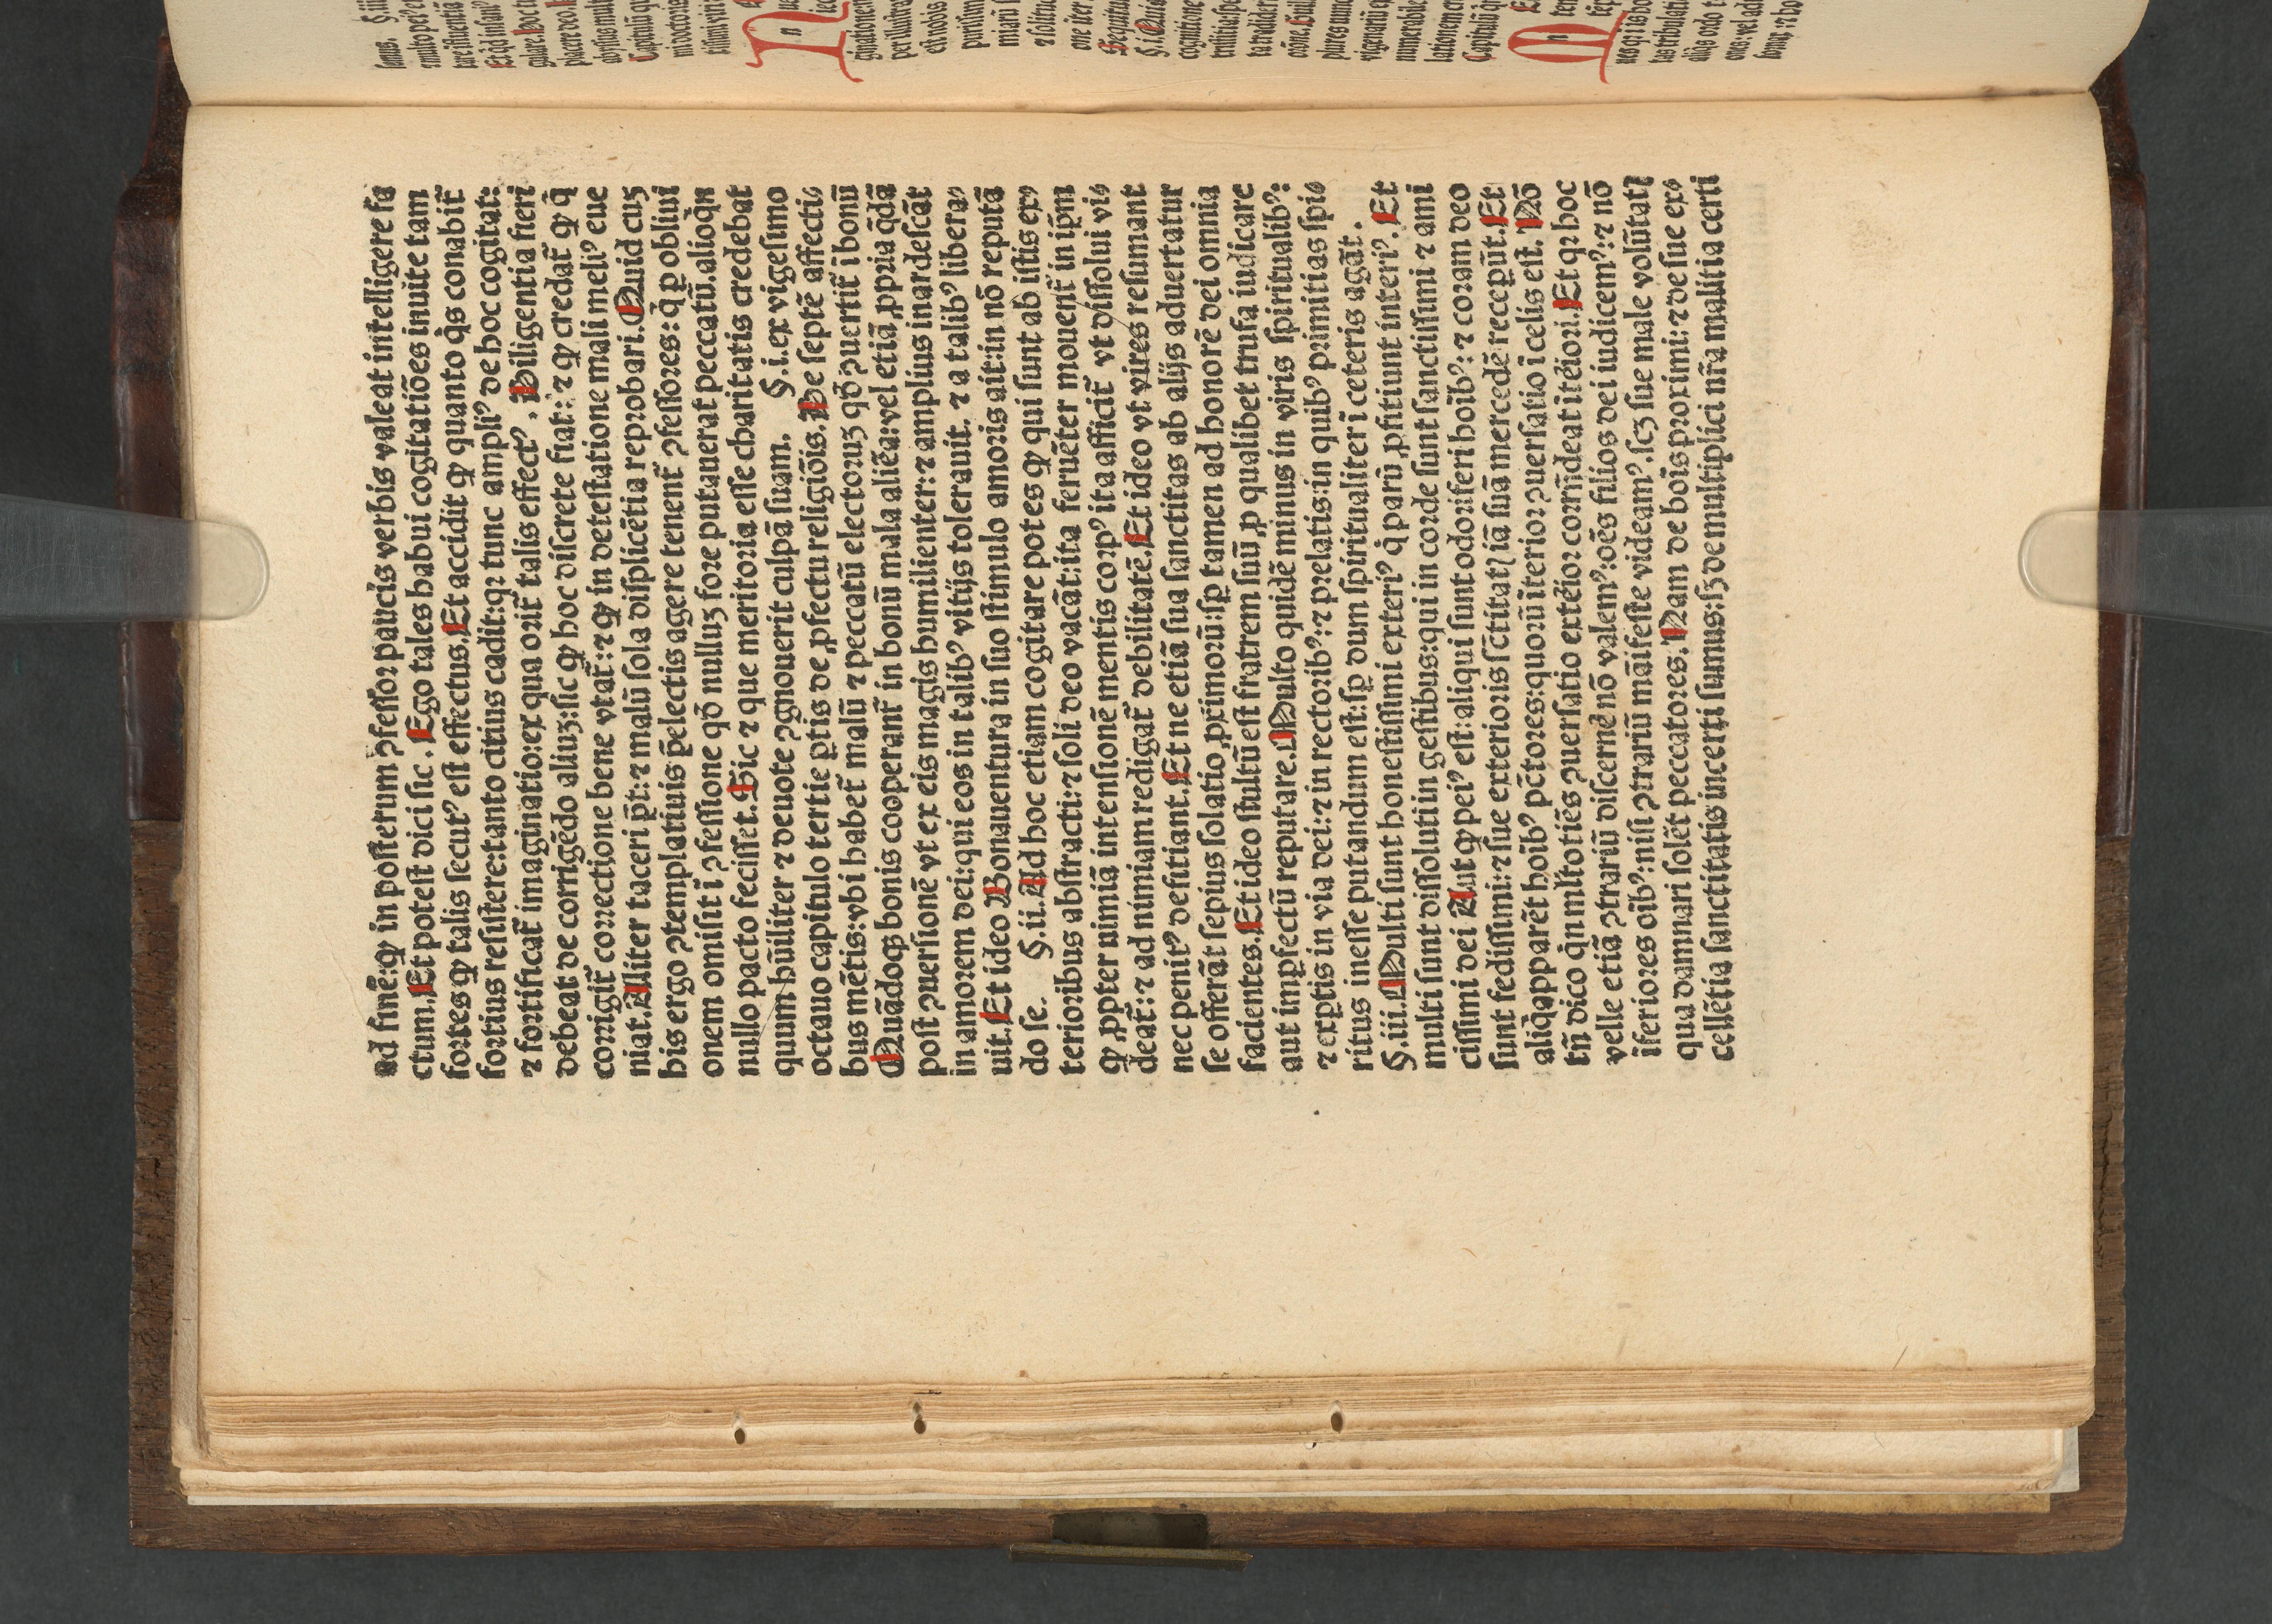 ad finē: ꝙ in posterum ꝯfessor paucis verbis valeat intelligere fa
ctum. Et potest dici sic. Ego tales habui cogitatiōes inuite tam
fortes ꝙ talis secutꝰ est effectus. Et accidit ꝙ quanto q̇s conabit᷑
fortius resistere: tanto citius cadit: qꝛ tunc ampliꝰ de hoc cogitat:
⁊ fortificat᷑ imaginatio: ex qua orit᷑ talis effectꝰ. Diligentia fieri
debeat de corrigēdo aliuꝫ: sic ꝙ hoc discrete fiat: ⁊ ꝙ credat᷑ ꝙ q̇
corrigit᷑ correctione bene vtat᷑: ⁊ ꝙ in detestatione mali meliꝰ eue
niat. Aliter taceri p̄t: ⁊ malū sola displicētia reprobari. Quid cuꝫ
bis ergo ꝯtemplatiuis p̄electis agere tenent᷑ ꝯfessores: q̇ ꝑ obliui
onem omisit ī ꝯfessione qđ nulluꝫ fore putauerat peccatū. alioq̇n
nullo pacto fecisset. Sic ⁊ que meritoria esse charitatis credebat
quum hūiliter ⁊ deuote ꝯgnouerit culpā suam. §.i. ex vigesimo
octauo capitulo tertie ꝑtis de ꝓfectu religiōis. De septē affectis
bus mētis: vbi habet᷑ malū ⁊ peccatū electoruꝫ qđ ꝯuertit᷑ ī bonū
Quādoqꝫ bonis cooperant᷑ in bonū mala aliēa: vel etiā ꝓpria q̇dā
post ꝯuersionē vt ex eis magis humilienter: ⁊ amplius inardescāt
in amorem dei: qui eos in talibꝰ vitijs tolerauit. ⁊ a talibꝰ libera
uit. Et ideo Bonauentura in suo stimulo amoris ait: in nō reputā
do se. §.ii. Ad hoc etiam cogitare potes ꝙ qui sunt ab istis ex
terioribus abstracti: ⁊ soli deo vacāt: ita feruēter mouent᷑ in ip̄m
ꝙ ꝓpter nimiā intensionē mentis corpꝰ ita afficit᷑ vt dissolui vi
deat᷑: ⁊ ad nimiam redigat᷑ debilitatē. Et ideo vt vires resumant
nec penitꝰ defitiant. Et ne etiā sua sanctitas ab alijs aduertatur
se offerāt sepius solatio ꝓximorū: sꝑ tamen ad honorē dei omnia
facientes. Et ideo stultū est fratrem suū ꝓ qualibet trufa iudicare
aut imꝑfectū reputare. Multo quidē minus in viris spiritualibꝰ:
⁊ exꝑtis in via dei: ⁊ in rectoribꝰ: ⁊ prelatis: in quibꝰ primitias spi
ritus inesse putandum est: sꝑ dum spiritualiter ī ceteris agāt.
§.iii. Multi sunt honestissimi exteriꝰ q̇ parū ꝓfitiunt interiꝰ. Et
multi sunt dissoluti in gestibus: qui in corde sunt sanctissimi ⁊ ami
cissimi dei Aut ꝙ peiꝰ est: aliqui sunt odoriferi hoībꝰ: ⁊ coram deo
sunt fedissimi: ⁊ sue exterioris sctītatꝭ iā suā mercedē receꝑūt. Et
aliq̇ apparēt hoībꝰ pc̄tores: quorū īterior ꝯuersatio ī celis est. Nō
tn̄ dico q̇n ml̄totiēs ꝯuersatio extēior corrn̄deat ītēiori. Et qꝛ hoc
velle etiā ꝯtrariū discernē nō valemꝰ: oēs filios dei iudicemꝰ: ⁊ nō
īferiores oībꝰ: nisi ꝯtrariū māifeste videamꝰ. scꝫ sue male volūtatꝭ
qua damnari solēt peccatores. Nam de boīs proximi: ⁊ de sue ex
cellētia sanctitatis incerti sumus: sꝫ de multiplici nr̄a malitia certi